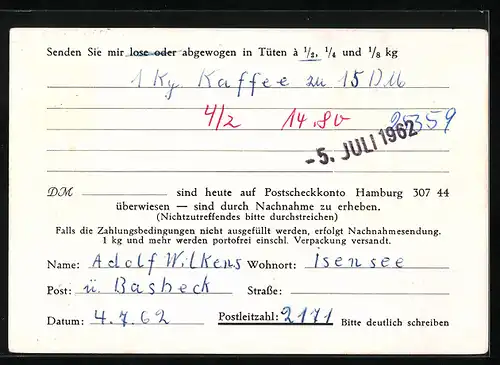 Senden Sie mir lose oder abgewogen in Tüten à 1/2, 1/4 und 1/8 kg
1 Kg. Kaffee zu 15 DM
4/2 14.80 25359
-5. JULI 1962
DM sind heute auf Postscheckkonto Hamburg 307 44
überwiesen — sind durch Nachnahme zu erheben.
(Nichtzutreffendes bitte durchstreichen)
Falls die Zahlungsbedingungen nicht ausgefüllt werden, erfolgt Nachnahmesendung.
1 kg und mehr werden portofrei einschl. Verpackung versandt.
Name: Adolf Wilkens Wohnort: Isensee
Post: ü. Basbeck Straße:
Datum: 4.7.62 Postleitzahl: 2171 Bitte deutlich schreiben